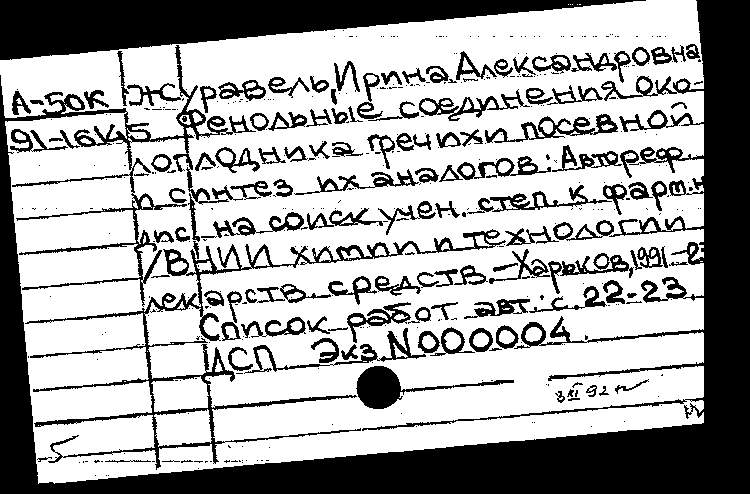 А-50К Журавель, Ирина Александровна
91-16145 Фенольные соединения око-
лоплодника гречихи посевной
и синтез их аналогов: Автореф.
дис. на соиск. учен. степ. к. фарм. н
/ВНИИ химии и технологии
лекарств. средств. - Харьков, 1991 - 23
Список работ авт.: с. 22-23.
ДСП Экз. N 000004.
3 XI 92
5